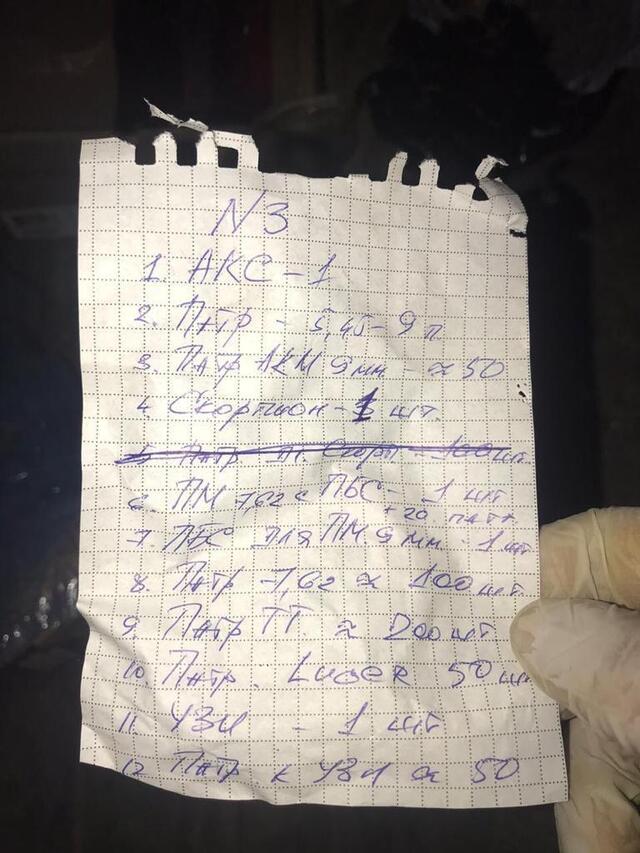 N3
1. АКС – 1
2. Пнтр – 5,45 – 9 п
3. Пнтр АКМ 9мм – ≈ 50
4. Скорпион – 1 шт.
5 Пнтр Скорп – 100 шт.
6 ПМ 7,62 с ПБС – 1 шт
+ 20 патр.
7. ПБС для ПМ 9 мм – 1 шт
8. Пнтр – 7,62 ≈ 100 шт.
9. Пнтр ТТ. ≈ шт
10. Пнтр. Luger 50 шт
11. УЗИ – 1 шт
12 Пнтр к УЗИ ≈ 50